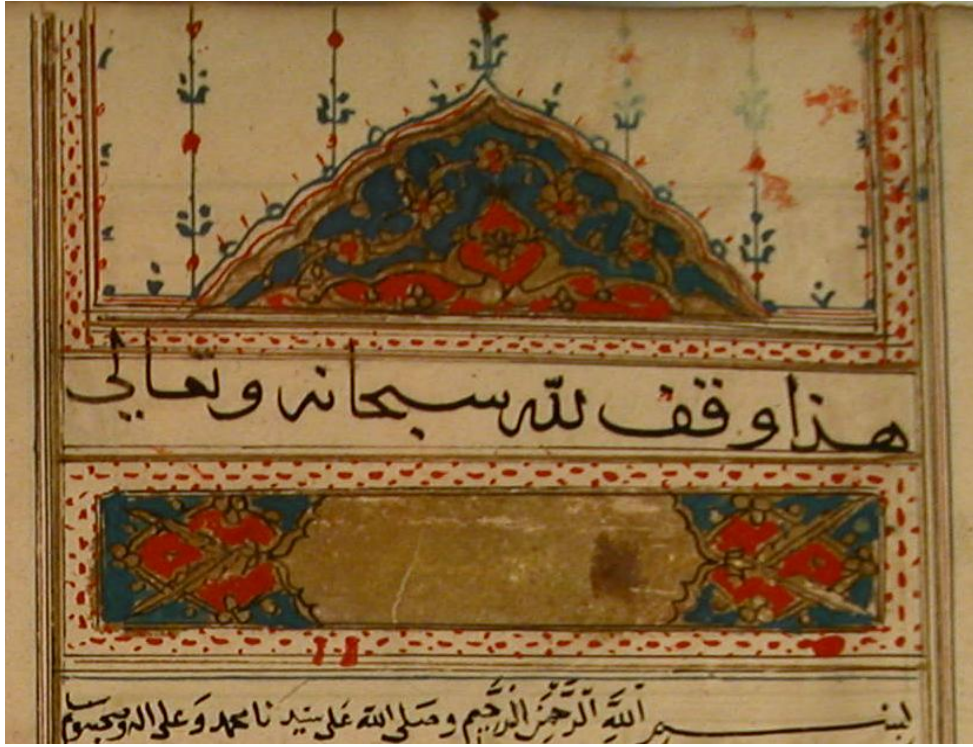 هذا وقف لله سبحانه وتعالى
بسم اللَّه الرَّحمن الرَّحيم وصلى الله على سيدنا محمد وعلى اله وصحبه وسلم